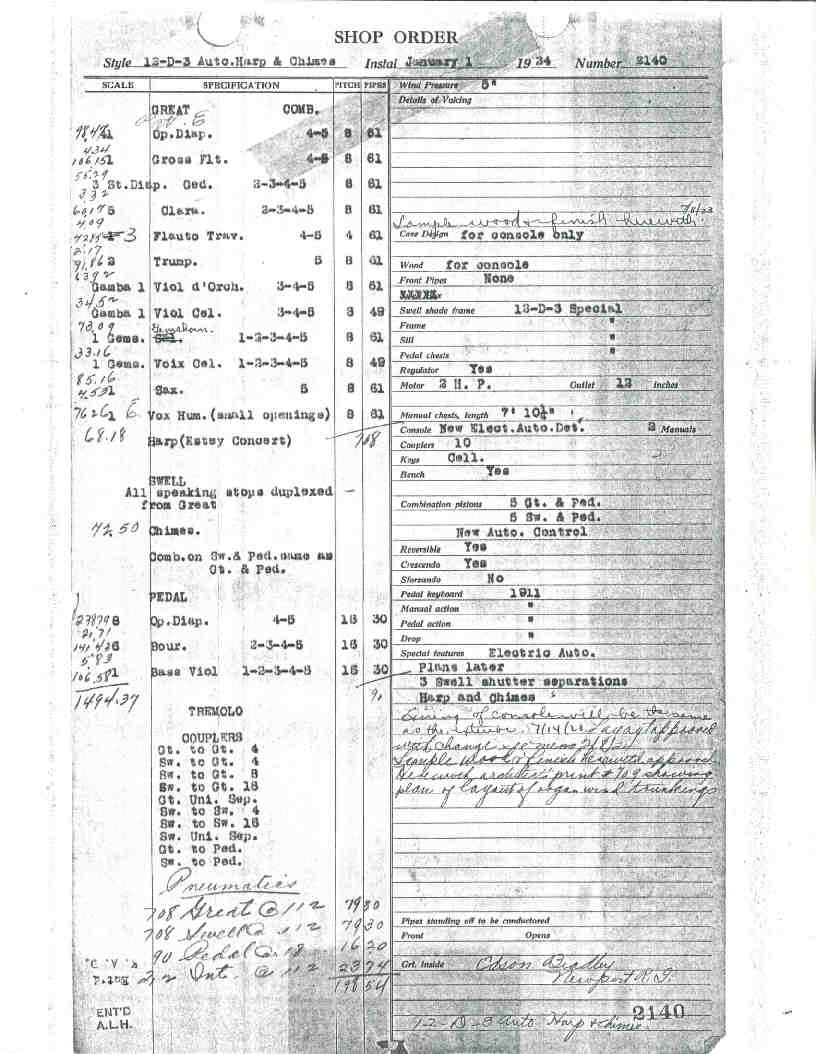 SHOP ORDER
Style 12-D-3 Auto.Harp & Chimes Instal January 1 1924 Number 2140
SCALE SPECIFICATION PITCH PIPES
GREAT COMB.
Op.Diap. 4-5 8 61
434
Gross Flt. 4-5 8 61
55.29
3 St.Diap. Ged. 2-3-4-5 8 61
3.32
Clara. 2-3-4-5 8 61
4.09
3 Flauto Trav. 4-5 4 61
2.17
Trump. 5 8 61
6392
Gamba 1 Viol d'Orch. 3-4-5 8 61
34.52
Gamba 1 Viol Cel. 3-4-5 8 49
73.09
Gemshorn.
1 Gems. 1-2-3-4-5 8 61
33.16
1 Gems. Voix Cel. 1-2-3-4-5 8 49
85.16
Sax. 5 8 61
Vox Hum.(small openings) 8 61
68.18 Harp(Estey Concert) 708
SWELL
All speaking stops duplexed
from Great
42.50 Chimes.
Comb.on Sw.& Ped.same as
Gt. & Ped.
PEDAL
Op.Diap. 4-5 16 30
21.71
Bour. 2-3-4-5 16 30
5.83
106.58 1 Bass Viol 1-2-3-4-5 16 30
1494.37
TREMOLO
COUPLERS
Gt. to Gt. 4
Sw. to Gt. 4
Sw. to Gt. 8
Sw. to Gt. 16
Gt. Uni. Sep.
Sw. to Sw. 4
Sw. to Sw. 16
Sw. Uni. Sep.
Gt. to Ped.
Sw. to Ped.
Pneumatics
708 Great @ 112 7930
708 Swell @ 112 7930
90 Pedal @ 18 1620
212 Int. @ 112 2374
19854
ENT'D
A.L.H.
Wind Pressure 5"
Details of Voicing
Sample wood & finish herewith 7/11/23
Case Design for console only
Wood for console
Front Pipes None
Swell shade frame 12-D-3 Special
Frame "
Sill "
Pedal chests "
Regulator Yes
Motor 2 H. P. Outlet 12 inches
Manual chests, length 7' 10½"
Console New Elect.Auto.Det. 2 Manuals
Couplers 10
Keys Cell.
Bench Yes
Combination pistons 5 Gt. & Ped.
5 Sw. & Ped.
New Auto. Control
Reversible Yes
Crescendo Yes
Sforzando No
Pedal keyboard 1911
Manual action "
Pedal action "
Drop "
Special features Electric Auto.
Plans later
3 Swell shutter separations
Harp and Chimes
of console will be the same
as the exterior. 7/14/23 approved
with change
Sample wood & finish herewith approved
Herewith architect's print #709 showing
plan of layout of organ wind trunkings
Pipes standing off to be conductored
Front Opens
Grt. inside Edson Bradley
Newport R.I.
2140
12-D-3 Auto Harp & Chimes